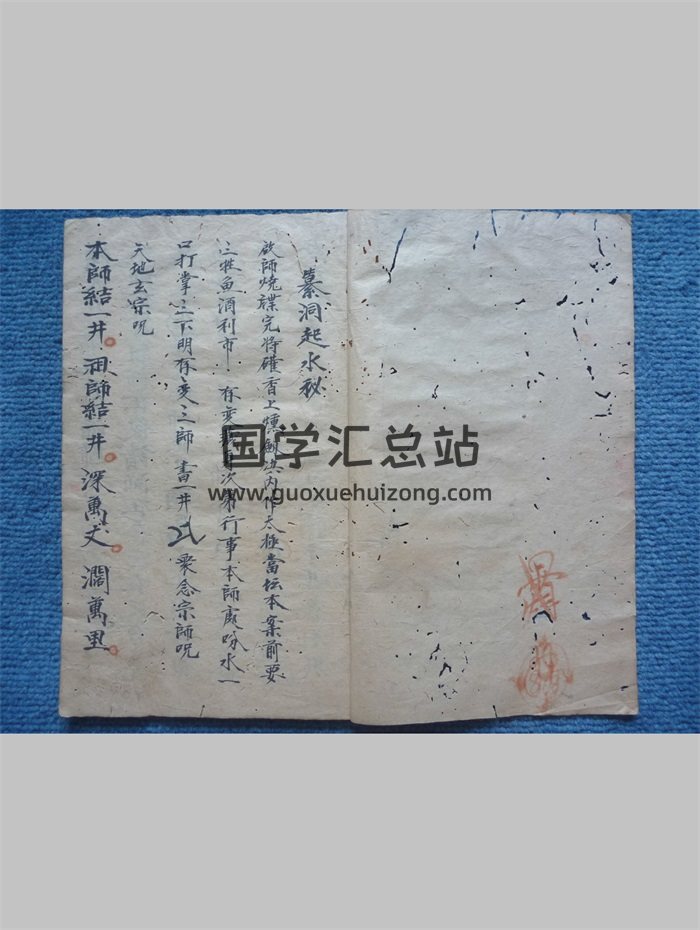 洞起水秘
啟師燒牒完將確香上內作太極當坛本案前要
三牲魚酒利市 存变次第行事本師處吩水一
口打掌三下明存变三師 畫一井 衆念宗師咒
天地玄宗咒
本師結一井。祖師結一井。深萬丈。濶萬里。
国学汇总站
www.guoxuehuizong.com